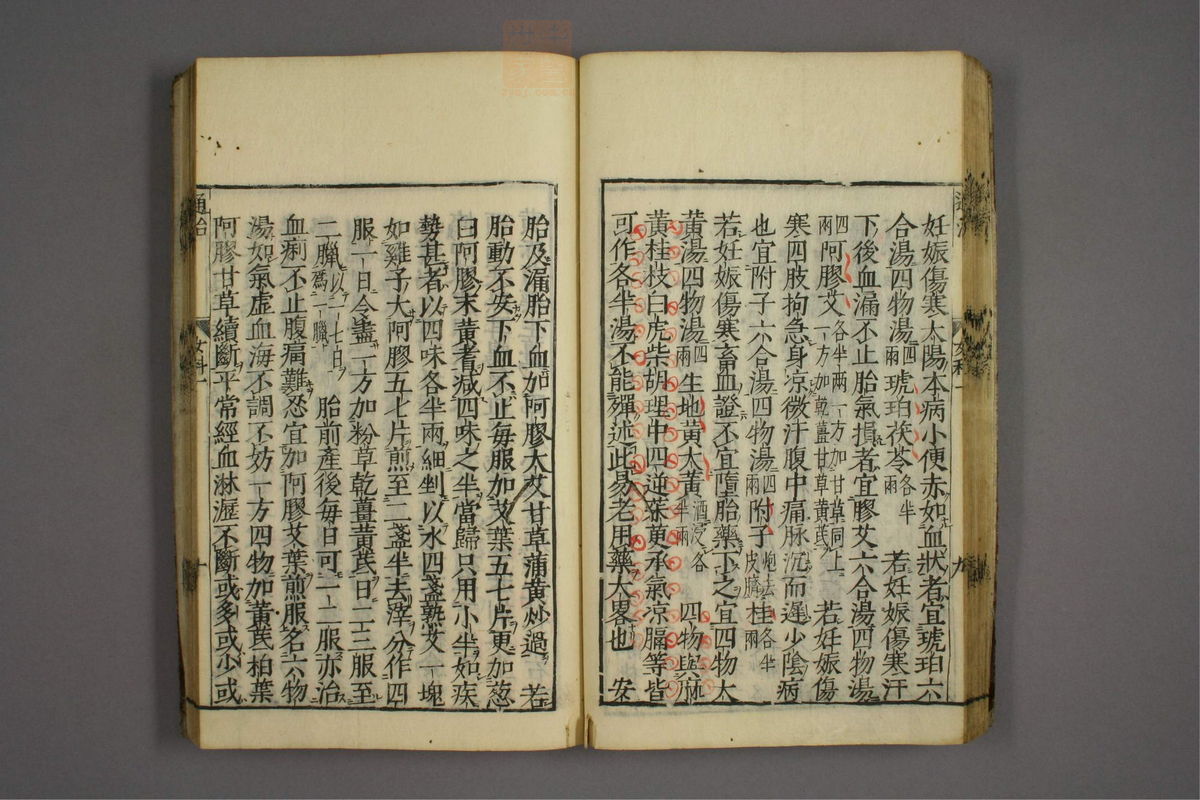 妊娠傷寒太陽本病小便赤如血狀者宜琥珀六
合湯四物湯四兩琥珀茯苓各半兩 若妊娠傷寒汗
下後血漏不止胎氣損者宜膠艾六合湯四物湯
四兩阿膠艾各半兩一方加甘草同上一方加乾薑甘草黃芪 若妊娠傷
寒四肢拘急身凉微汗腹中痛脉沉而遲少陰病
也宜附子六合湯四物湯四兩附子炮去皮臍桂各半兩
若妊娠傷寒畜血證不宜墮胎藥下之宜四物大
黃湯四物湯四兩生地黃大黃酒浸各半兩 四物與麻
黃桂枝白虎柴胡理中四逆茱萸承氣凉膈等皆
可作各半湯不能殫述此易老用藥大畧也 安
女科一
九
胎及漏胎下血加阿膠大艾甘草蒲黃炒過 若
胎動不安下血不止每服加艾葉五七片更加葱
白阿膠末黃耆减四味之半當歸只用小半如疾
勢甚者以四味各半兩細剉以水四盞熟艾一塊
如雞子大阿膠五七片煎至二盞半去滓分作四
服一日令盡一方加粉草乾薑黃芪日二三服至
二臘以二七日爲一臘 胎前產後每日可二三服亦治
血痢不止腹痛難忍宜加阿膠艾葉煎服名六物
湯如氣虚血海不調不妨一方四物加黃芪柏葉
阿膠甘草續斷平常經血淋瀝不斷或多或少或
通治
女科一
十